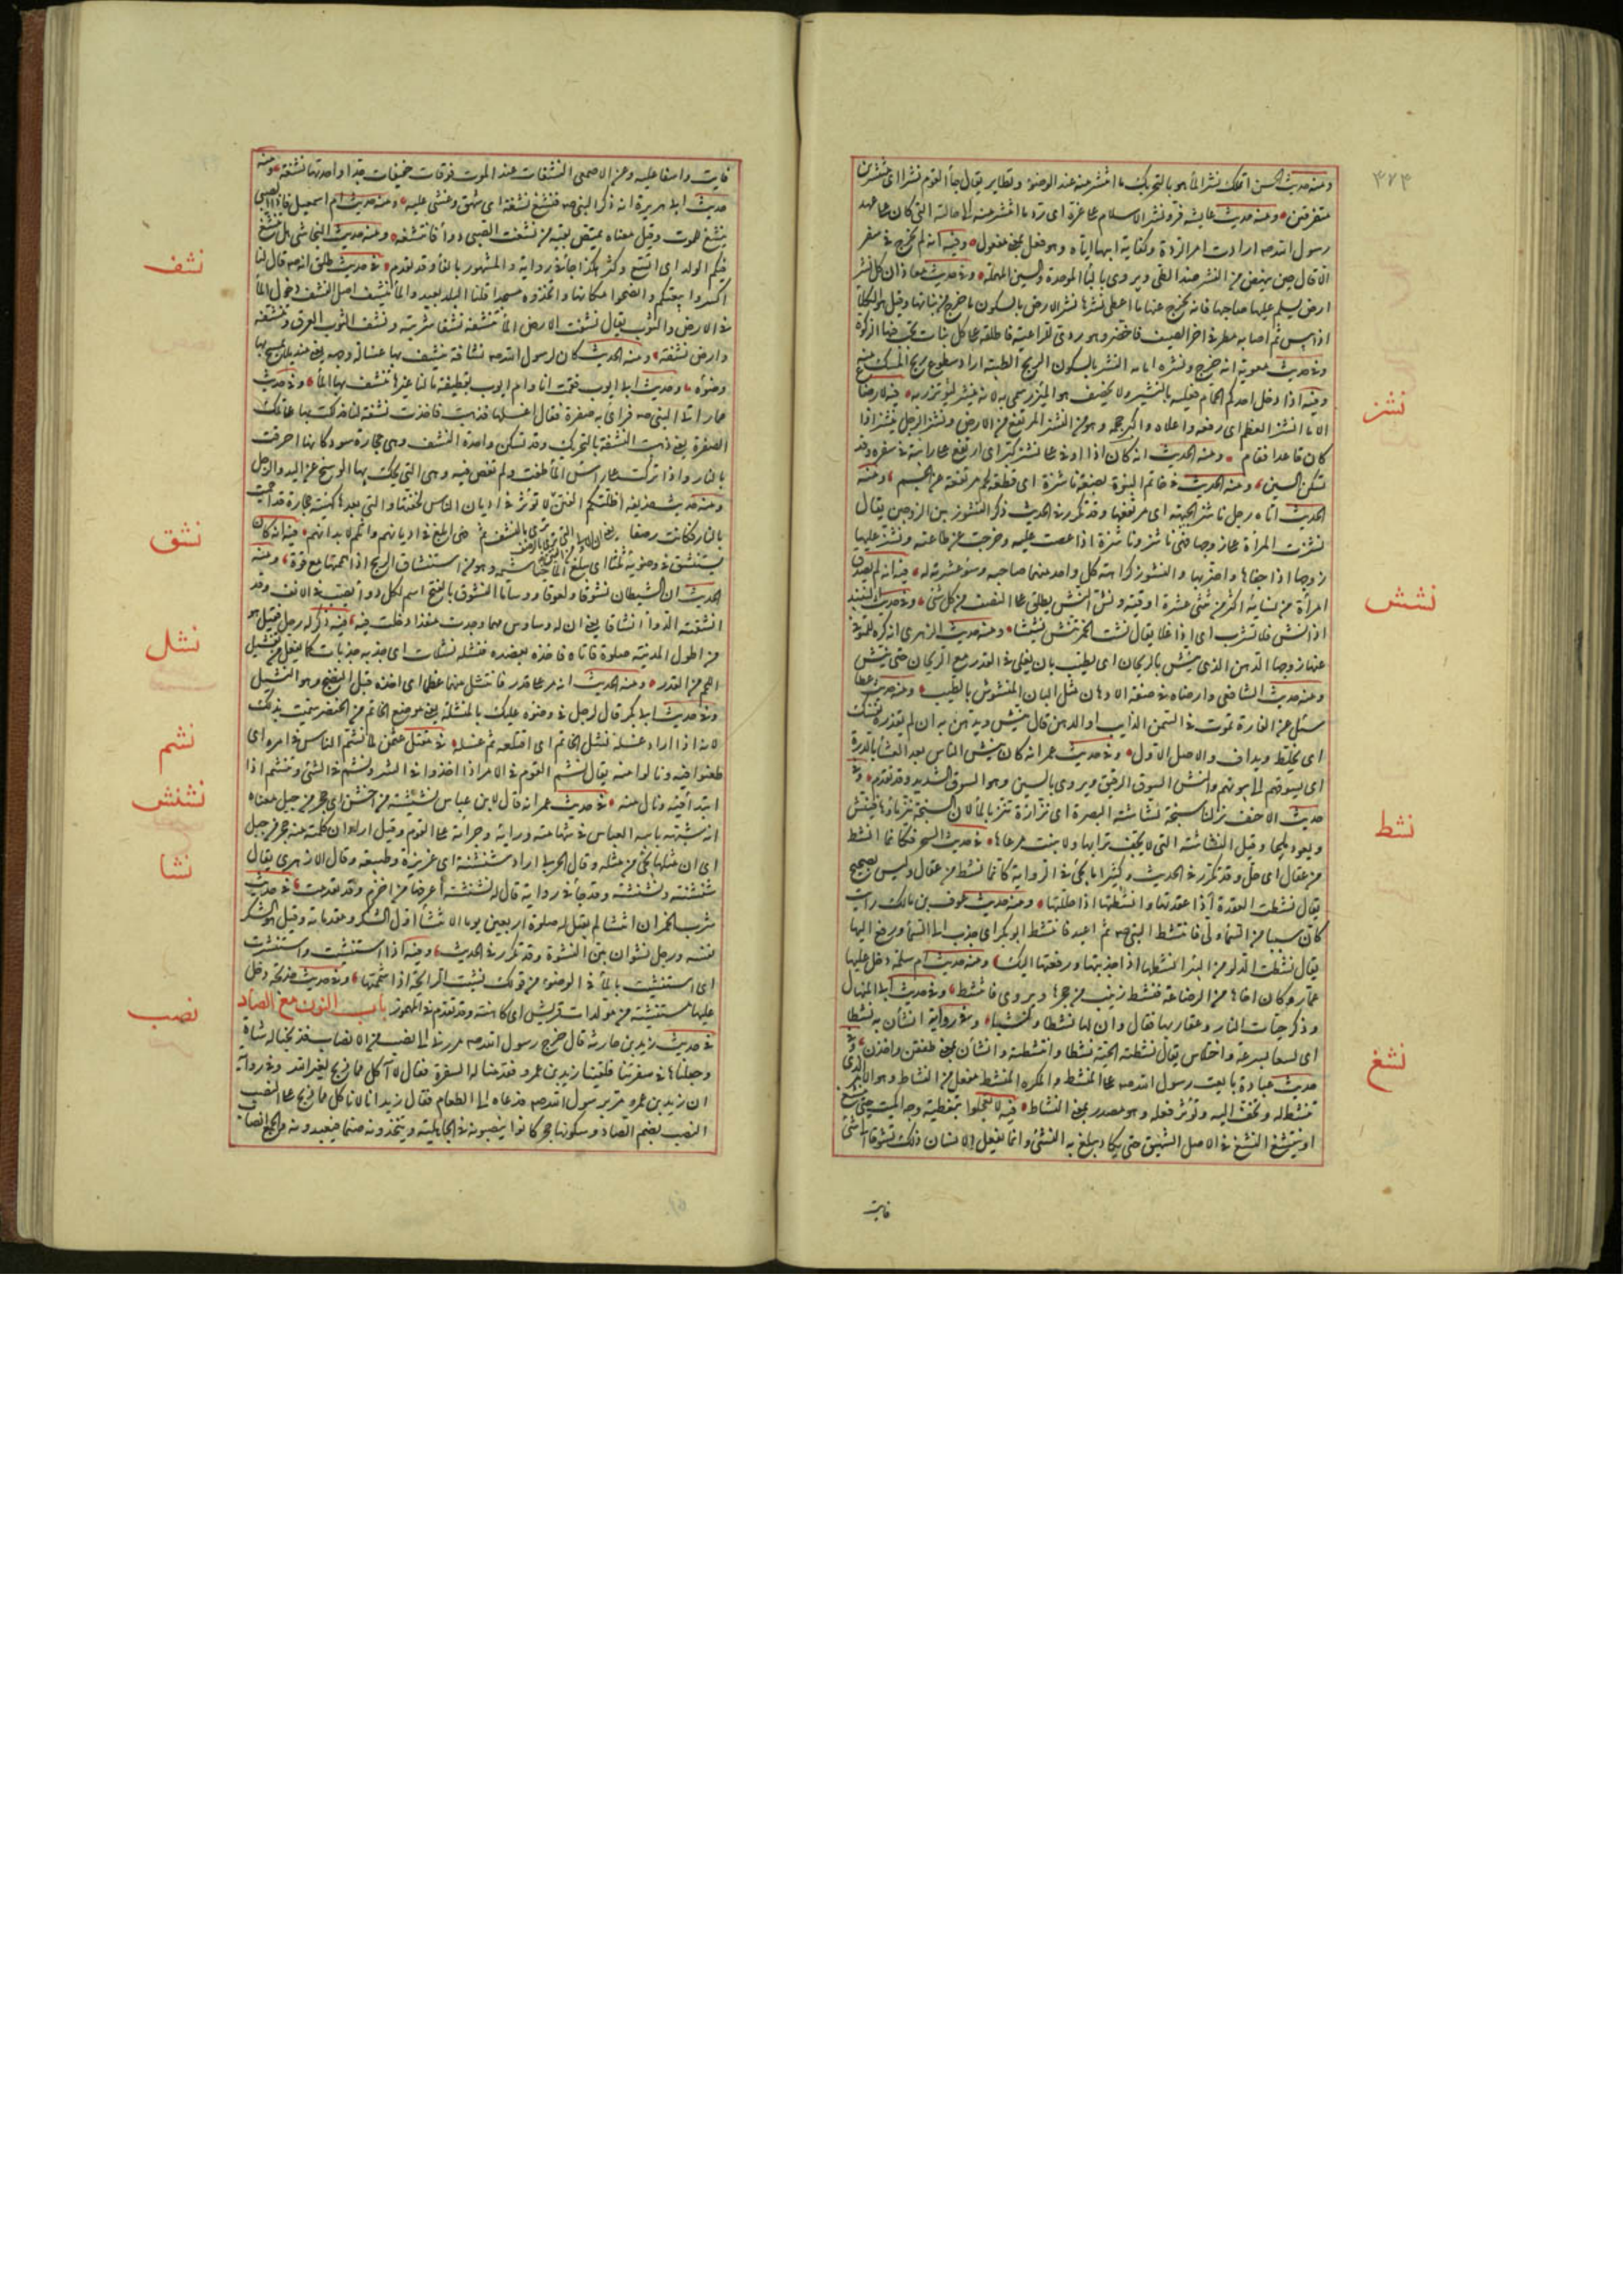 ٣٧٣
ومنه حديث الحسن اتملك نشر الماء هو بالتحريك ما انتشر منه عند الوضوء وتطاير يقال جاء القوم نشرا اى منتشرين
متفرقين ومنه حديث عايشة فرد نشر الاسلام على غره اى رد ما انتشر منه الى حالته التى كان على عهد
رسول الله صـ ارادت امر الردة وكفاية ابيها اياه وهو فعل بمعنى مفعول وفيه انه لم يخرج فى سفر
الا قال حين ينهض من النشر ضد الطى ويروى بالباء الموحدة والسين المهملة وفى حديث معاذ ان كل نشر
ارض يسلم عليها صاحبها فانه يخرج عنها ما اعطى نشرها نشر الارض بالسكون ما خرج من نباتها وقيل هو الكلأ
اذا يبس ثم اصابه مطر فى اخر الصيف فاخضر وهو ردى للراعية فاطلقه على كل نبات تجب فيها الزكوة
وفى حديث معوية انه خرج ونشره امامه النشر بالسكون الريح الطيبة اراد سطوع ريح المسك منه
وفيه اذا دخل احدكم الحمام فعليه بالنشير ولا يخصف هو المئزر سمى به لانه ينشر ليؤتزر به فيه لا رضاع
نشز
الا ما انشز العظم اى رفعه واعلاه واكبر حجمه وهو من النشز المرتفع من الارض ونشز الرجل ينشز اذا
كان قاعدا فقام ومنه الحديث انه كان اذا اوفى على نشز كبر اى ارتفع على رابية فى سفره وقد
تسكن الشين ومنه الحديث فى خاتم النبوة بضعة ناشزة اى قطعة لحم مرتفعة عن الجسم ومنه
الحديث اتاه رجل ناشز الجبهة اى مرتفعها وقد تكرر فى الحديث ذكر النشوز بين الزوجين يقال
نشزت المرأة على زوجها فهى ناشز وناشزة اذا عصت عليه وخرجت عن طاعته ونشز عليها
زوجها اذا جفاها واضر بها والنشوز كراهة كل واحد منهما صاحبه وسوء عشرته له فيه انه لم يصدق
نشش
امرأة من نسائه اكثر من ثنتى عشرة اوقية ونش النش يطلق على النصف من كل شئ وفى حديث النبيذ
اذا نش فلا تشرب اى اذا غلا يقال نشت الخمر تنش نشيشا ومنه حديث الزهرى انه كره للمتوفى
عنها زوجها الدهن الذى ينش بالريحان اى يطيب بان يغلى فى القدر مع الريحان حتى ينش
ومنه حديث الشافعى وارضاه فى صفة الادهان مثل البان المنشوش بالطيب ومنه حديث عطا
سئل عن الفارة تموت فى السمن الذايب او الدهن قال ينش ويدهن به ان لم تقذره نفسك
اى يخلط ويداف والاصل الاول وفى حديث عمر انه كان ينش الناس بعد العشاء بالدرة
اى يسوقهم الى بيوتهم والنش السوق الرفيق ويروى بالسين وهو السوق الشديد وقد تقدم وفى
حديث الاحنف نزلنا سبخة نشاشة البصرة اى نزازة تنز بالماء لان السبخة ينز ماؤها فينش
ويعود ملحا وقيل النشاشة التى لا يجف ترابها ولا ينبت مرعاها فى حديث السحر فكانما انشط
نشط
من عقال اى حل وقد تكرر فى الحديث وكثيرا ما يجئ فى الرواية كانما نشط من عقال وليس بصحيح
يقال نشطت العقدة اذا عقدتها وانشطتها اذا حللتها ومنه حديث عوف بن مالك رايت
كان سببا من السماء دلى فانتشط النبى صـ ثم اعيد فانتشط ابو بكر اى جذب الى السماء ورفع اليها
يقال نشطت الدلو من البئر انشطها اذا جذبتها ورفعتها اليك ومنه حديث ام سلمة دخل عليها
عمار وكان اخاها من الرضاعة فنشط زينب من حجرها ويروى فانتشط وفى حديث ابى المنهال
وذكر حيات النار وعقاربها فقال وان لها نشطا ولسبا وفى رواية انشأن به نشطا
اى لسعا بسرعة واختلاس يقال نشطته الحية نشطا وانتشطته وانشأن بمعنى طفقن واخذن وفى
حديث عبادة بايعت رسول الله صـ على المنشط والمكره المنشط مفعل من النشاط وهو الامر الذى
تنشط له وتخف اليه وتؤثر فعله وهو مصدر بمعنى النشاط فيه لا تعجلوا بتغطية وجه الميت حتى ينشغ
نشغ
او يتنشغ النشغ فى الاصل الشهيق حتى يكاد يبلغ به الغشى وانما يفعل الانسان ذلك تشوقا الى شئ
فايت
فايت واسفا عليه وعن الاصمعى النشغات عند الموت فوقات خفيفات جدا واحدتها نشغة ومنه
حديث ابى هريرة انه ذكر النبى صـ فنشغ نشغة اى شهق وغشى عليه ومنه حديث ام اسمعيل فاذا الصبى
ينشغ للموت وقيل معناه يمتص بفيه من نشغت الصبى دواء فانتشغه ومنه حديث النجاشى هل تنشغ
فيكم الولد اى اتسع وكثر هكذا جاء فى رواية والمشهور بالفاء وقد تقدم فى حديث طلق انه صـ قال لنا
نشف
اكسروا بيعتكم وانضحوا مكانها واتخذوه مسجدا قلنا البلد بعيد والماء ينشف اصل النشف دخول الماء
فى الارض والثوب يقال نشفت الارض الماء تنشفه نشفا شربته ونشف الثوب العرق وتنشفه
وارض نشفة ومنه الحديث كان لرسول الله صـ نشافة ينشف بها غسالة وجهه يعنى منديلا يمسح بها
وضوءه وحديث ابى ايوب فقمت انا وام ايوب بقطيفة ما لنا غيرها ننشف بها الماء وفى حديث
عمار اتى النبى صـ فرأى به صفرة فقال اغسلها فذهبت فاخذت نشفة لنا فدلكت بها على تلك
الصفرة يعنى ذهبت النشفة بالتحريك وقد تسكن واحدة النشف وهى حجارة سود كانها احرقت
بالنار واذا تركت على راس الماء طفت ولم تغص فيه وهى التى يحك بها الوسخ عن اليد والرجل
ومنه حديث حذيفة اظلتكم الفتن لا تؤثر فى اديان الناس لخفتها والتى بعدها كهيئة حجارة قد احميت
بالنار فكانت رضفا حتى ابلغ فى اديانهم واثلم لابدانهم فيه انه كان
نشق
يستنشق فى وضوئه ثلثا اى يبلغ الماء خياشيمه وهو من استنشاق الريح اذا شممتها مع قوة ومنه
الحديث ان للشيطان نشوقا ولعوقا ودساما النشوق بالفتح اسم لكل دواء يصب فى الانف وقد
انشقته الدواء انشاقا يعنى ان له وساوس مهما وجدت منفذا دخلت فيه فيه ذكر له رجل فقيل هو
نشل
من اطول المدينة صلوة فاتاه فاخذ بعضده فنشله نشلات اى جذبه جذبات كما يفعل من ينشل
اللحم من القدر ومنه الحديث انه مر على قدر فانتشل منها عظما اى اخذه قبل النضج وهو النشيل
وفى حديث ابى بكر قال لرجل فى وضوءه عليك بالمنشلة يعنى موضع الخاتم من الخنصر سميت بذلك
لانه اذا اراد غسله نشل الخاتم اى اقتلعه ثم غسله فى مقتل عثمن لما نشم الناس فى امره اى
نشم
طعنوا فيه ونالوا منه يقال نشم القوم فى الامر اذا اخذوا فى الشر ونشم فى الشئ وتنشم اذا
ابتدا فيه ونال منه فى حديث عمر انه قال لابن عباس نشنشة من اخشن اى حجر من جبل معناه
نشنش
انه شبهه بابيه العباس فى شهامته ورايه وجراته على القوم وقيل اراد ان كلمته منه حجر من جبل
اى ان مثلها يجئ من مثله وقال الحربى اراد شنشنة اى غريزة وطبيعة وقال الازهرى يقال
شنشنة ونشنشة وقد جاء فى رواية قال له شنشنة اعرفها من اخزم وقد تقدمت فى حديث
نشا
شرب الخمر ان انتشا لم يقبل له صلوة اربعين يوما الانتشاء اول السكر ومقدماته وقيل هو السكر
نفسه ورجل نشوان بين النشوة وقد تكرر فى الحديث وفيه اذا استنشيت واستنثرت
اى استنشقت بالماء فى الوضوء من قولك نشيت الرايحة اذا شممتها وفى حديث خديجة دخل
عليها مستنشية من مولدات قريش اى كاهنة وقد تقدم فى المهموز باب النون مع الصاد
نصب
فى حديث زيد بن حارثة قال خرج رسول الله صـ مردفى الى نصب من الانصاب فذبحنا له شاة
وجعلناها فى سفرتنا فلقينا زيد بن عمرو فقدمنا له السفرة فقال لا آكل مما ذبح لغير الله وفى رواية
ان زيد بن عمرو مر برسول الله صـ فدعاه الى الطعام فقال زيد انا لا ناكل مما ذبح على النصب
النصب بضم الصاد وسكونها حجر كانوا ينصبونه فى الجاهلية ويتخذونه صنما فيعبدونه والجمع انصاب